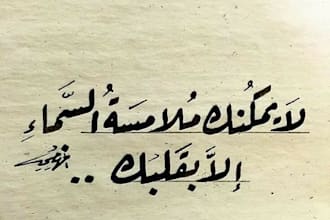 لَا يمكنُك مُلامسَةُ السَّماءِ
إلَّا بقَلبَك ..